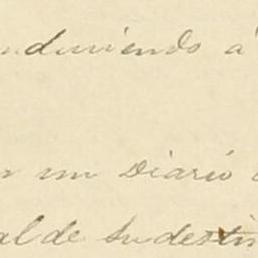 nduciendo á
n un Diario
al de su destin